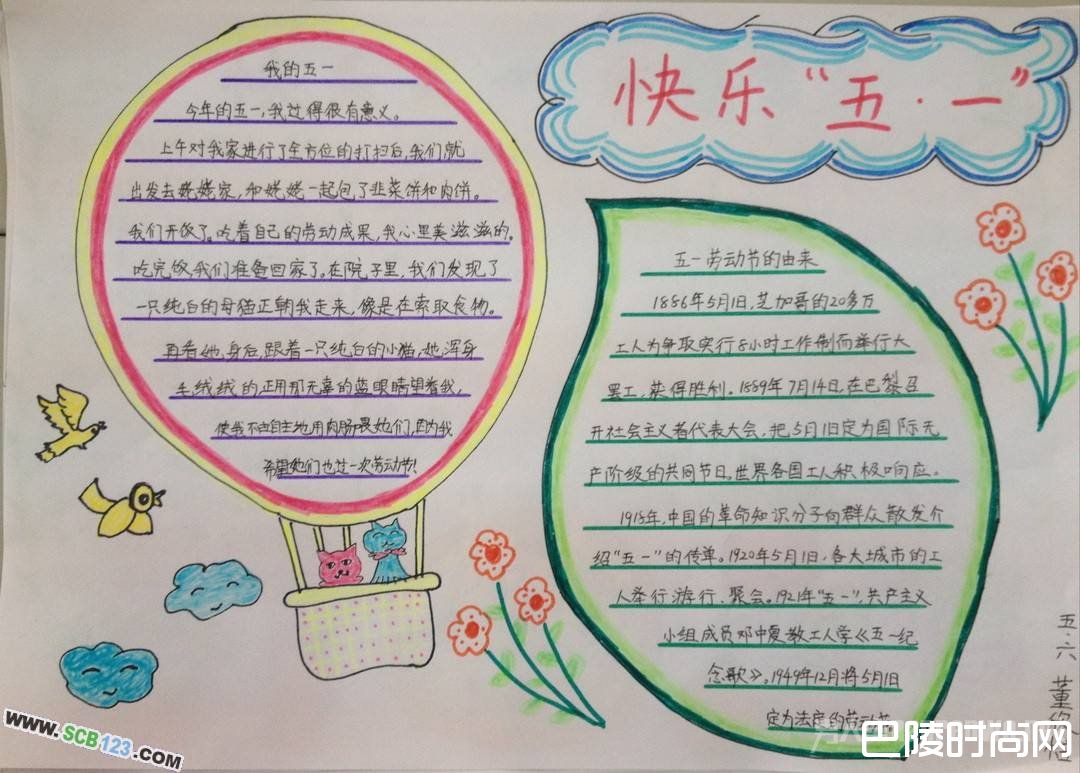 快乐“五·一”
我的五一
今年的五一,我过得很有意义。
上午对我家进行了全方位的打扫后,我们就
出发去姥姥家,和姥姥一起包了韭菜饼和肉饼。
我们开饭了。吃着自己的劳动成果,我心里美滋滋的。
吃完饭,我们准备回家了。在院子里,我们发现了
一只纯白的母猫正朝我走来,像是在索取食物。
再看她身后,跟着一只纯白的小猫,她浑身
毛绒绒的,正用那无辜的蓝眼睛望着我,
使我不由自主地用肉肠喂她们,因为我
希望她们也过一次劳动节!
五一劳动节的由来
1886年5月1日,芝加哥的20多万
工人为争取实行8小时工作制而举行大
罢工,获得胜利。1889年7月14日,在巴黎召
开社会主义者代表大会,把5月1日定为国际无
产阶级的共同节日。世界各国工人积极响应。
1915年,中国的革命知识分子向群众散发介
绍“五一”的传单。1920年5月1日,各大城市的工
人举行游行、聚会。1921年“五一”,共产主义
小组成员邓中夏教工人学《五一纪
念歌》。1949年12月将5月1日
定为法定的劳动节
五·六 董
WWW.SCB123.COM
巴陵时尚网